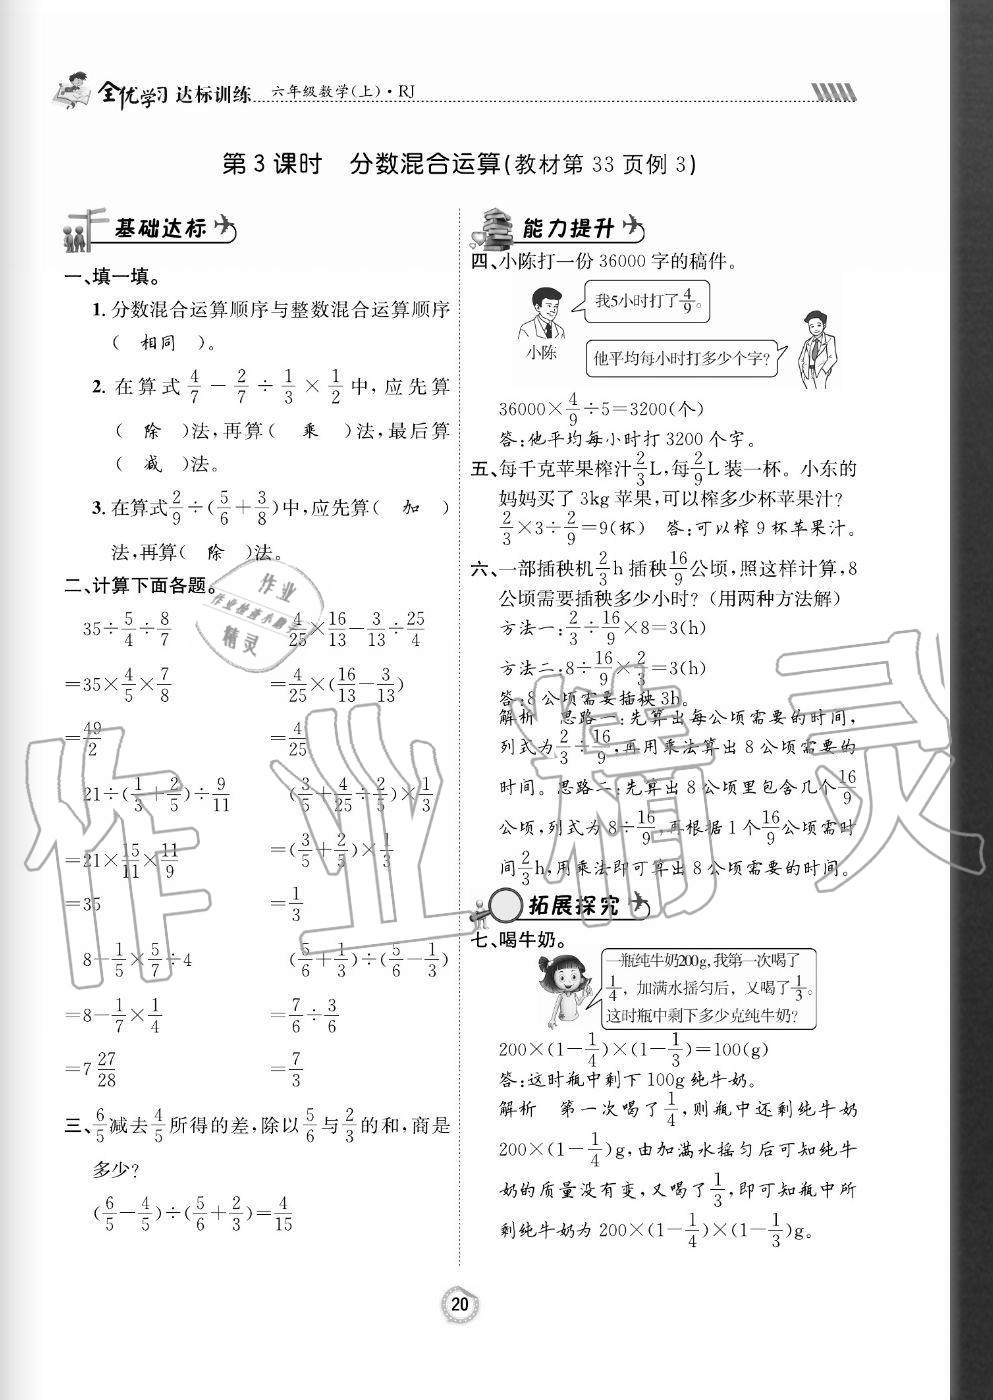 全优学习 达标训练 六年级数学(上)·RJ
第3课时 分数混合运算(教材第33页例3)
基础达标
一、填一填。
1. 分数混合运算顺序与整数混合运算顺序
( 相同 )。
2. 在算式4/7-2/7÷1/3×1/2中,应先算
( 除 )法,再算( 乘 )法,最后算
( 减 )法。
3. 在算式2/9÷(5/6+3/8)中,应先算( 加 )
法,再算( 除 )法。
二、计算下面各题。
35÷5/4÷8/7 4/25×16/13-3/13÷25/4
=35×4/5×7/8 =4/25×(16/13-3/13)
=49/2 =4/25
21÷(1/3+2/5)÷9/11 (3/5+4/25÷2/5)×1/3
=21×15/11×11/9 =(3/5+2/5)×1/3
=35 =1/3
8-1/5×5/7÷4 (5/6+1/3)÷(5/6-1/3)
=8-1/7×1/4 =7/6÷3/6
=7 27/28 =7/3
三、6/5减去4/5所得的差,除以5/6与2/3的和,商是
多少?
(6/5-4/5)÷(5/6+2/3)=4/15
能力提升
四、小陈打一份36000字的稿件。
我5小时打了4/9。
小陈
他平均每小时打多少个字?
36000×4/9÷5=3200(个)
答:他平均每小时打3200个字。
五、每千克苹果榨汁2/3L,每2/9L装一杯。小东的
妈妈买了3kg苹果,可以榨多少杯苹果汁?
2/3×3÷2/9=9(杯) 答:可以榨9杯苹果汁。
六、一部插秧机2/3h插秧16/9公顷,照这样计算,8
公顷需要插秧多少小时?(用两种方法解)
方法一:2/3÷16/9×8=3(h)
方法二:8÷16/9×2/3=3(h)
答:8公顷需要插秧3h。
解析 思路一:先算出每公顷需要的时间,
列式为2/3÷16/9,再用乘法算出8公顷需要的
时间。思路二:先算出8公顷里包含几个16/9
公顷,列式为8÷16/9,再根据1个16/9公顷需时
间2/3h,用乘法即可算出8公顷需要的时间。
拓展探究
七、喝牛奶。
一瓶纯牛奶200g,我第一次喝了
1/4,加满水摇匀后,又喝了1/3。
这时瓶中剩下多少克纯牛奶?
200×(1-1/4)×(1-1/3)=100(g)
答:这时瓶中剩下100g纯牛奶。
解析 第一次喝了1/4,则瓶中还剩纯牛奶
200×(1-1/4)g,由加满水摇匀后可知纯牛
奶的质量没有变,又喝了1/3,即可知瓶中所
剩纯牛奶为200×(1-1/4)×(1-1/3)g。
20
作业
作业检查小助手
精灵
作业精灵